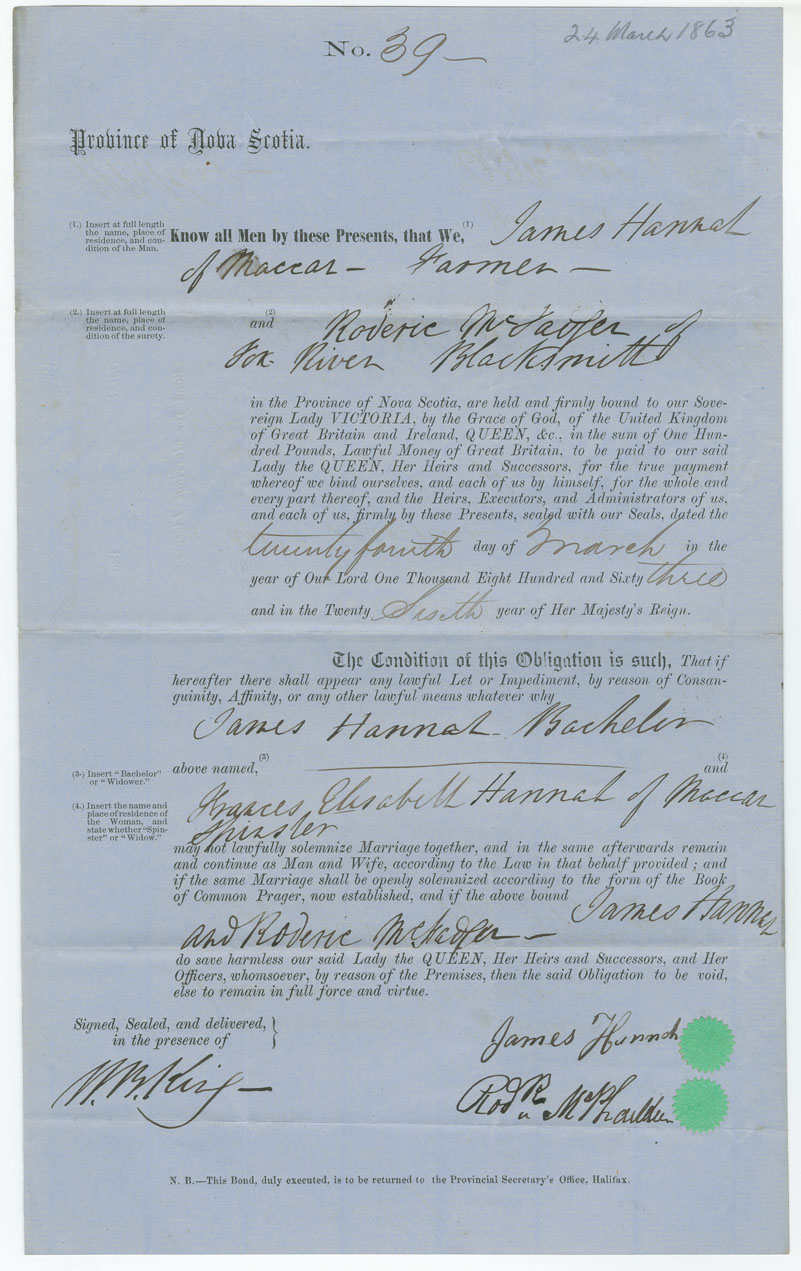 24 March 1863
No. 39
Province of Nova Scotia.
(1.) Insert at full length
the name, place of
residence, and con-
dition of the Man.
Know all Men by these Presents, that We, (1) James Hannah
of Maccan - Farmer -
(2.) Insert at full length
the name, place of
residence, and con-
dition of the surety.
(2)
and Roderic of
Fox River Blacksmith
in the Province of Nova Scotia, are held and firmly bound to our Sove-
reign Lady VICTORIA, by the Grace of God, of the United Kingdom
of Great Britain and Ireland, QUEEN, &c., in the sum of One Hun-
dred Pounds, Lawful Money of Great Britain, to be paid to our said
Lady the QUEEN, Her Heirs and Successors, for the true payment
whereof we bind ourselves, and each of us by himself, for the whole and
every part thereof, and the Heirs, Executors, and Administrators of us,
and each of us, firmly by these Presents, sealed with our Seals, dated the
twenty fourth day of March in the
year of Our Lord One Thousand Eight Hundred and Sixty three
and in the Twenty Sixth year of Her Majesty's Reign.
The Condition of this Obligation is such, That if
hereafter there shall appear any lawful Let or Impediment, by reason of Consan-
guinity, Affinity, or any other lawful means whatever why
James Hannah Bachelor
(3-) Insert "Bachelor"
or "Widower."
above named, (3) and (4)
(4.) Insert the name and
place of residence of
the Woman, and
state whether "Spin-
ster" or "Widow."
Frances Elisabeth Hannah of Maccan
Spinster
may not lawfully solemnize Marriage together, and in the same afterwards remain
and continue as Man and Wife, according to the Law in that behalf provided; and
if the same Marriage shall be openly solemnized according to the form of the Book
of Common Prager, now established, and if the above bound James Hannah
and Roderic
do save harmless our said Lady the QUEEN, Her Heirs and Successors, and Her
Officers, whomsoever, by reason of the Premises, then the said Obligation to be void,
else to remain in full force and virtue.
Signed, Sealed, and delivered,
in the presence of
James Hannah
W. B. King
N. B.—This Bond, duly executed, is to be returned to the Provincial Secretary's Office, Halifax.